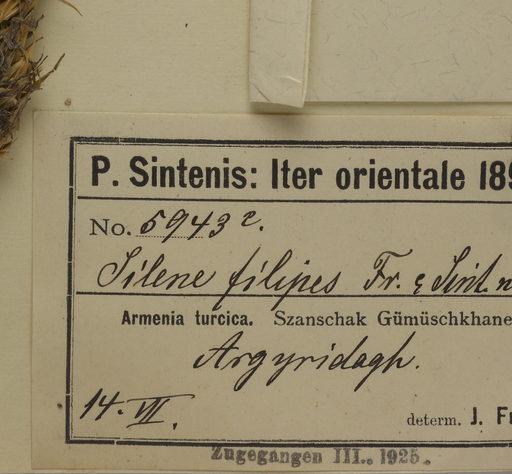 P. Sintenis: Iter orientale 189
No. 5943 z.
Silene filipes Fr. & Sint. n
Armenia turcica. Szanschak Gümüschkhane
Argyridagh.
14. VII.
determ. J. Fr
Zugegangen III. 1925.